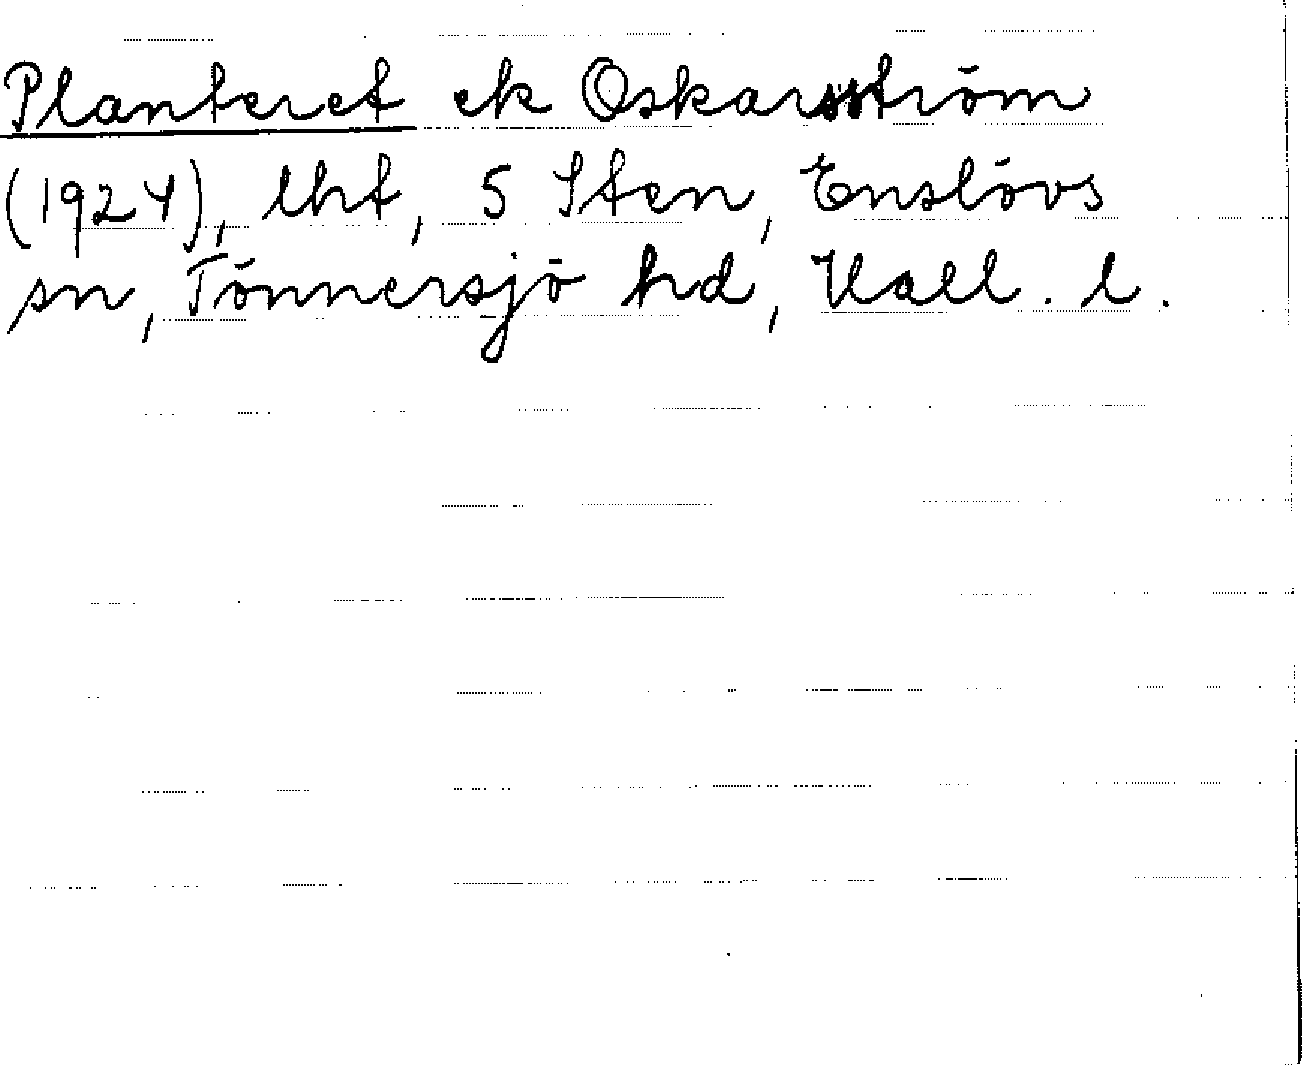 Planteret ek Oskarsström
(1924), lht, 5 Sten, Enslövs
sn, Tönnersjö hd, Hall. l.